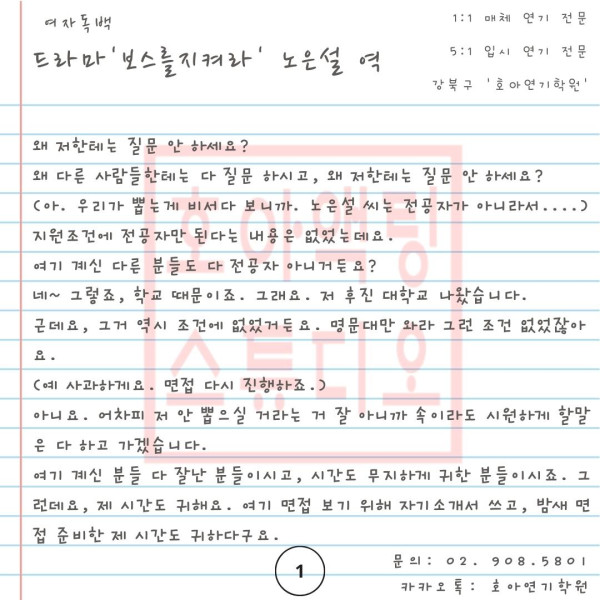 여자독백
1:1 매체 연기 전문
드라마'보스를지켜라' 노은설 역
5:1 입시 연기 전문
강북구 '호아연기학원'
왜 저한테는 질문 안 하세요?
왜 다른 사람들한테는 다 질문 하시고, 왜 저한테는 질문 안 하세요?
(아. 우리가 뽑는게 비서다 보니까. 노은설 씨는 전공자가 아니라서....)
지원조건에 전공자만 된다는 내용은 없었는데요.
여기 계신 다른 분들도 다 전공자 아니거든요?
네~ 그렇죠, 학교 때문이죠. 그래요. 저 후진 대학교 나왔습니다.
근데요, 그거 역시 조건에 없었거든요. 명문대만 와라 그런 조건 없었잖아
요.
(예 사과하게요. 면접 다시 진행하죠.)
아니요. 어차피 저 안 뽑으실 거라는 거 잘 아니까 속이라도 시원하게 할말
은 다 하고 가겠습니다.
여기 계신 분들 다 잘난 분들이시고, 시간도 무지하게 귀한 분들이시죠. 그
런데요, 제 시간도 귀해요. 여기 면접 보기 위해 자기소개서 쓰고, 밤새 면
접 준비한 제 시간도 귀하다구요.
호아액팅
스튜디오
1
문의: 02. 908.5801
카카오톡: 호아연기학원